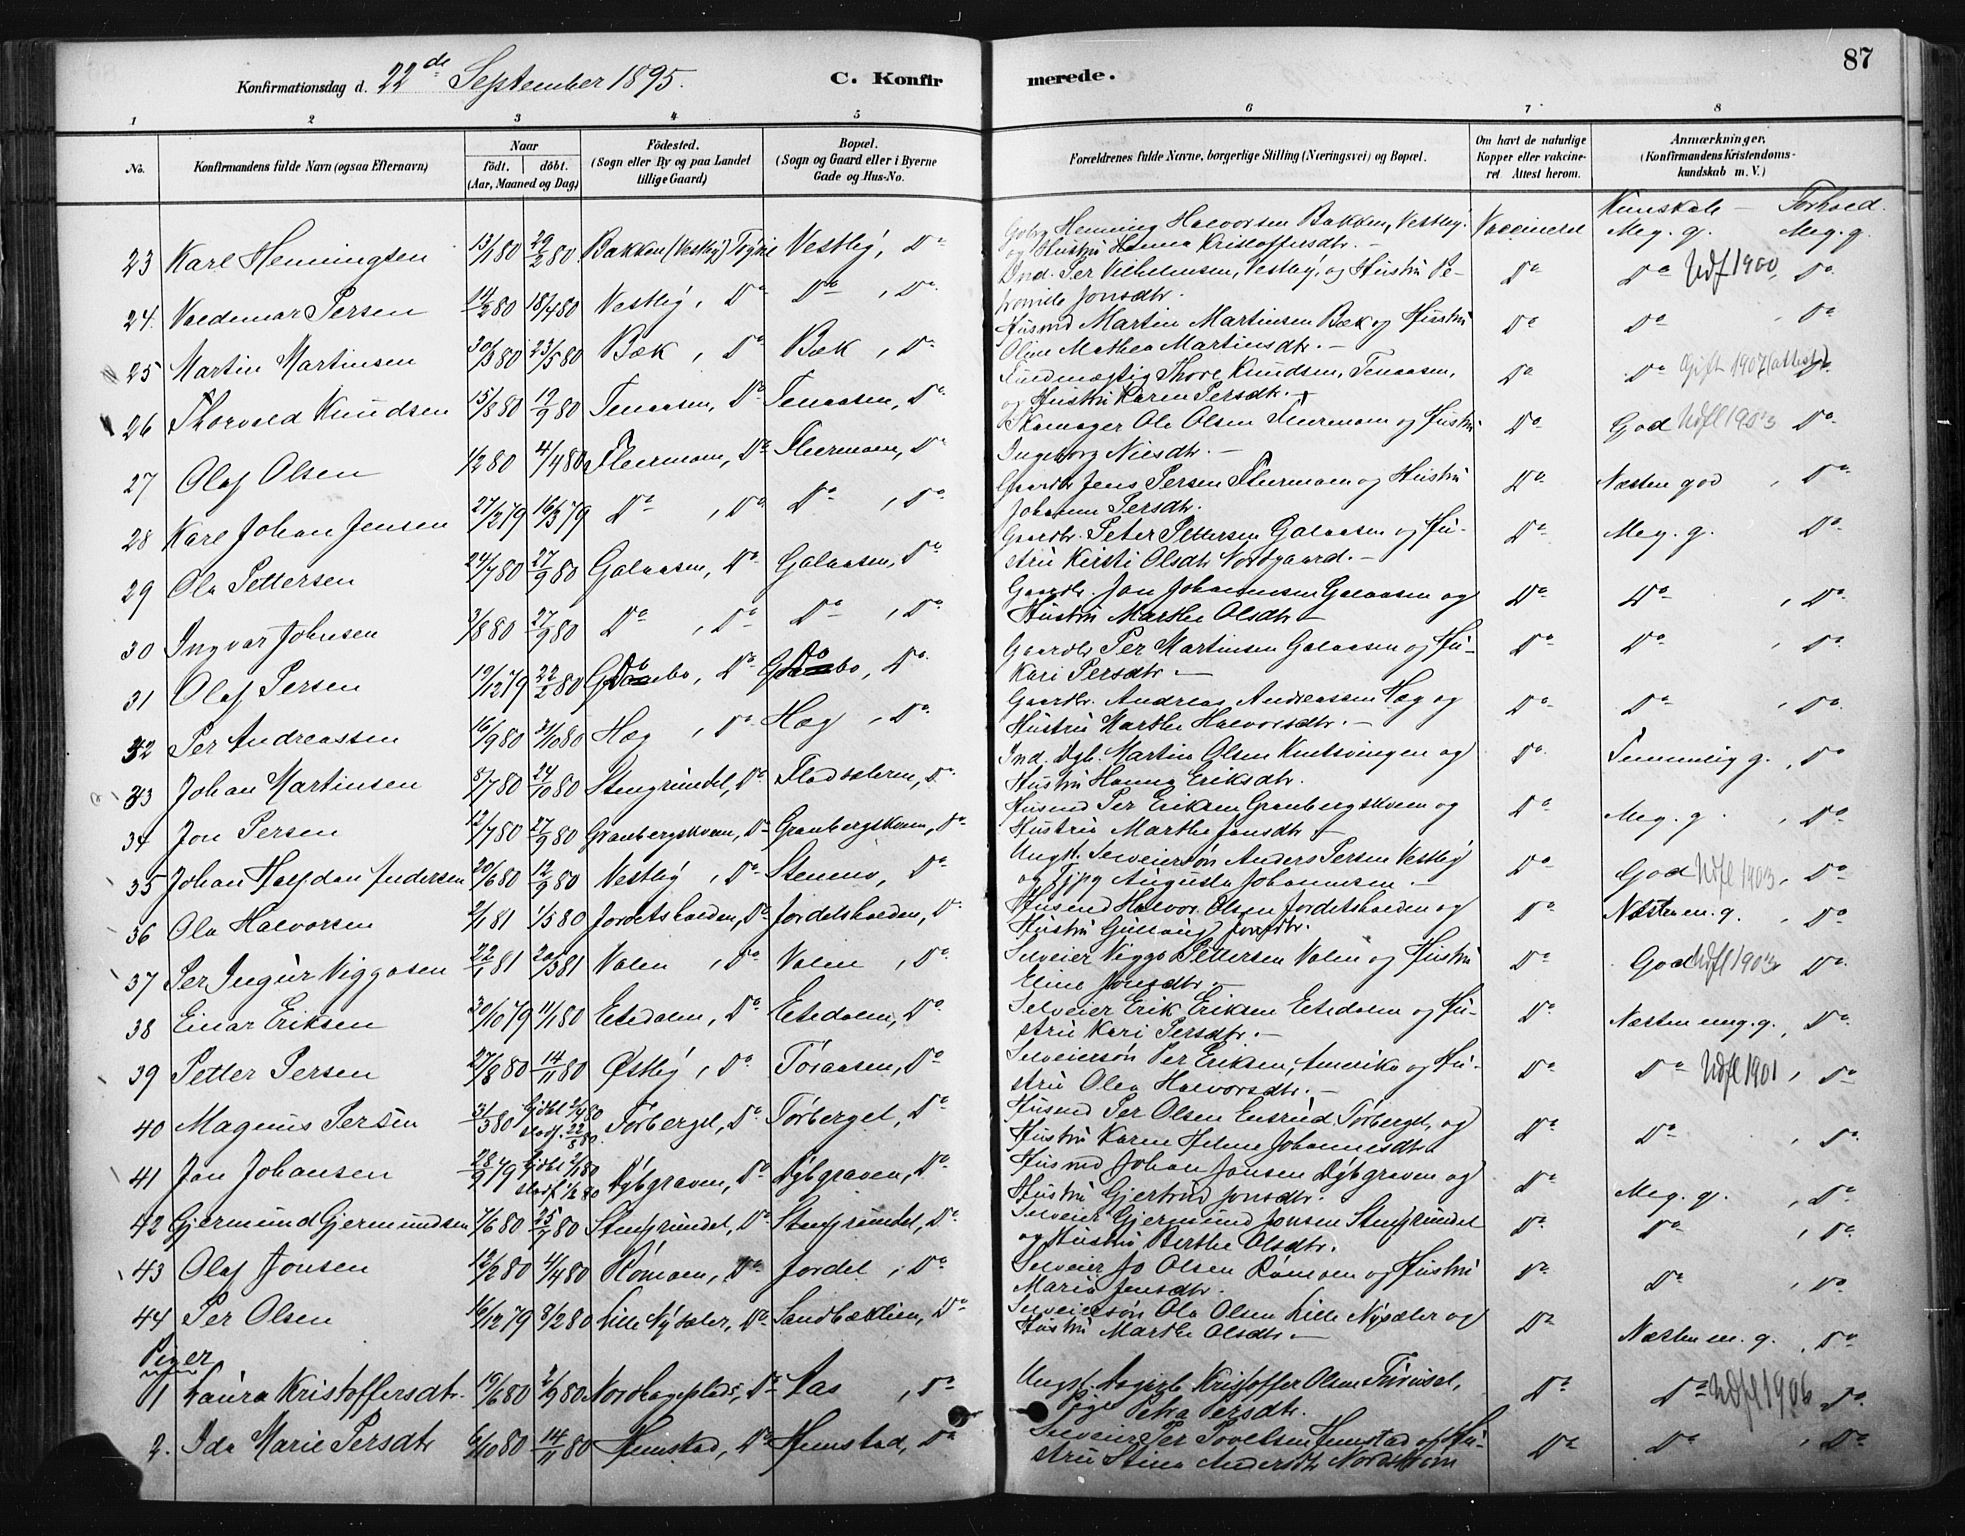 87
Konfirmationsdag d. 22de September 1895. C. Konfirmerede.
1 2 3 4 5 6 7 8
No. Konfirmandens fulde Navn (ogsaa Efternavn) Naar født. døbt. (Aar, Maaned og Dag) Födested. (Sogn eller By og paa Landet tillige Gaard) Bopæl. (Sogn og Gaard eller i Byerne Gade og Hus-No. Forældrenes fulde Navne, borgerlige Stilling (Næringsvei) og Bopæl. Om havt de naturlige Kopper eller vakcineret Attest herom. Anmærkninger. (Konfirmandens Kristendomskundskab m. V.)
Kunskab — Forhold.
23 Karl Henningsen 13/1 80 29/2 80 Bakken (Vestby) Vestby, Do Henning Halvorsen Bakken, Vestby. Vaccineret Meg. g. Meg. g.
og Hustru Hanna Kristoffersdtr. —
24. Valdemar Persen 18/4 80 Vestby, Do Do, Do Ind. Per Vilhelmsen, Vestby, og Hustru Pe- Do Do Udf 1900, Do
tronille Jonsdtr.
25 Martin Martinsen 30/3 80 23/5 80 Bæk, Do Bæk, Do Husmd Martin Martinsen Bæk og Hustru Do Do, Do
Oline Mathea Martinsdtr. —
26 Thorvald Knudsen 15/8 80 19/9 80 Tenaasen, Do Tenaasen, Do Thore Knudsen, Tenaasen, Do Do Gift 1907 (attest)
og Hustru Karen Persdtr. —
27 Olaf Olsen 1/2 80 4/4 80 Flermoen, Do Flermoen, Do Skomager Ole Olsen Flermoen og Hustru Do God Udfl 1903 Do
Ingeborg Nilsdtr. —
28 Karl Johan Jensen 27/1 79 16/3 79 Do, Do Do, Do Gaardbr Jens Persen Flermoen og Hustru Do Næsten god, Do
Johanne Persdtr.
29 Ola Pettersen 24/7 80 27/9 80 Galaasen, Do Galaasen, Do Gaardbr. Peter Pettersen Galaasen og Hu- Do Meg. g. Do
stru Kirsti Olsdtr Nordgaard. —
30 Ingvar Johnsen 3/8 80 27/9 80 Do, Do Do, Do Gaardbr. Jon Johannesen Galaasen og Do Do, Do
Hustru Marthe Olsdtr —
31 Olaf Persen 19/12 79 22/2 80 Do, Do Do, Do Gaardbr Per Martinsen Galaasen og Hu- Do Do, Do
Kari Persdtr. —
32 Per Andreassen 16/9 80 31/10 80 Hæg, Do Hæg, Do Gaardbr. Andreas Andreassen Hæg og Do Do, Do
Hustru Marthe Halvorsdtr. —
33 Johan Martinsen 8/7 80 24/10 80 Stengrundet, Do Flodsætern, Do Ind. Dgb. Martin Olsen og Do Temmelig g., Do
Hustru Hanna Eriksdtr.
34 Jon Persen 12/7 80 27/9 80 Granbergskvæn, Do Granbergskvæn, Do Husmd Per Eriksen Granbergskvæn og Do Meg. g., Do
Hustru Marthe Jonsdtr —
35 Johan Halfdan Andersen 20/6 80 12/9 80 Vestby, Do Stenmo, Do Ungk. Selveiersøn Anders Persen Vestby Do God Udfl 1903, Do
og Pige Augusta Johannesen. —
36 Ola Halvorsen 2/1 81 1/5 80 Jordetsholden, Do Jordetsholden, Do Husmd Halvor Olsen Jordetsholden og Do Næsten m. g., Do
Hustru Gullaug Jonsdtr.
37 Per Ingur Viggosen 22/1 81 20/3 81 Volen, Do Volen, Do Selveier Viggo Pettersen Volen og Hustru Do God Udfl 1903 Do
Eline Jonsdtr. —
38 Einar Eriksen 30/10 79 11/1 80 Eltdalen, Do Eltdalen, Do Selveier Erik Eriksen Eltdalen og Hu- Do Næsten meg. g., Do
stru Kari Persdtr. —
39 Petter Persen 27/8 80 14/11 80 Østby, Do Töraasen, Do Selveiersøn Per Eriksen, Amerika og Hu- Do Do Udfl 1901, Do
stru Olea Halvorsdtr. —
40 Magnus Persen 3/3 80 Gjdbt 2/4 80 Törberget, Do Törberget, Do Husmd Per Olsen Ensrud, Törberget, og Do Do, Do
stadf. 22/8 80. Hustru Karen Helene Johannesdtr
41 Jon Johansen 28/9 79 Gjdbt 2/1 80 Dybgraven, Do Dybgraven, Do Husmd Johan Jonsen Dybgraven og Do Meg. g., Do
stadf 1/2 80 Hustru Gjertrud Jonsdtr.
42 Gjermund Gjermundsen 7/6 80 25/7 80 Stengrundet, Do Stengrundet, Do Selveier Gjermund Jonsen Stengrundet Do Do, Do
og Hustru Berthe Olsdtr.
43 Olaf Jonsen 12/2 80 4/4 80 Römoen, Do Jordet, Do Selveier Jo Olsen Römoen og Hustru Do Do, Do
Maria Jensdtr.
44 Per Olsen 16/12 79 8/2 80 Lille Nysæter, Do Sandbæklien, Do Selveiersøn Ola Olsen Lille Nysæter og Do Næsten m. g., Do
Hustru Marthe Olsdtr. —
Piger
1 Laura Kristoffersdtr. 19/6 80 2/9 80 Nordhageplads, Do Aas, Do Ungk. Kristoffer Olsen Do Do Udfl 1906 Do
Pige Petra Persdtr.
2. Ida Marie Persdtr 6/10 80 14/11 80 Hemstad, Do Hemstad, Do Selveier Per Povelsen Hemstad og Hu- Do Do, Do
stru Stina Andersdtr Nordström